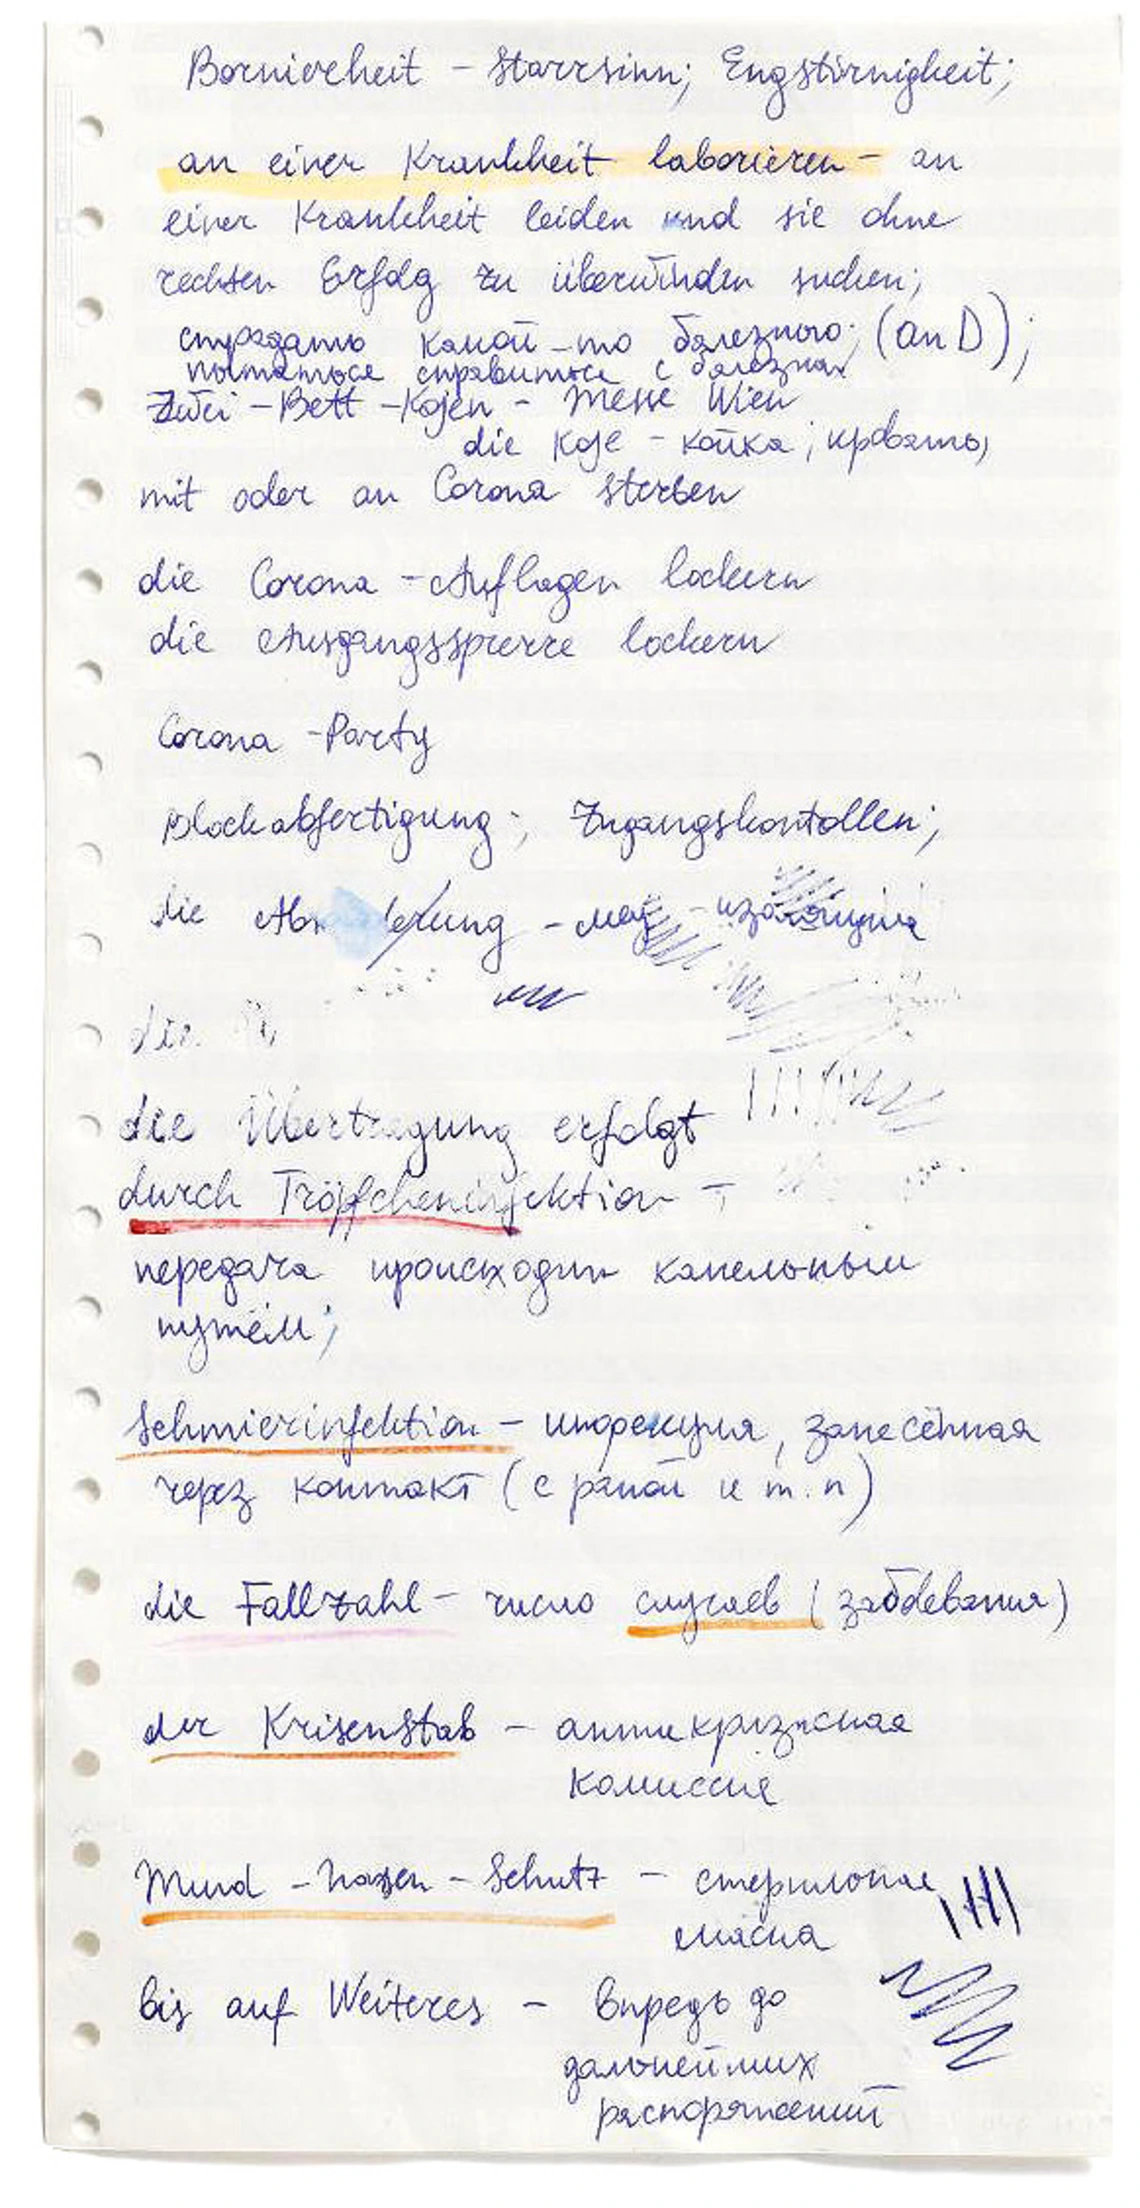 Borniertheit - Starrsinn; Engstirnigkeit;
an einer Krankheit laborieren - an
einer Krankheit leiden und sie ohne
rechten Erfolg zu überwinden suchen;
страдать какой-то болезнью; (an D);
пытаться справиться с болезнью
Zwei-Bett-Kojen - Messe Wien
die Koje - койка; кровать,
mit oder an Corona sterben
die Corona-Auflagen lockern
die Ausgangssperre lockern
Corona-Party
Blockabfertigung; Zugangskontollen;
die - изоляция
die
die Übertragung erfolgt
durch Tröpfcheninfektion -
передача происходит капельным
путём;
Schmierinfektion - инфекция, занесённая
через контакт (с раной и т.п)
die Fallzahl - число случаев (заболевания)
der Krisenstab - антикризисная
комиссия
Mund-Nasen-Schutz - стерильная
маска
bis auf Weiteres - впредь до
дальнейших
распоряжений